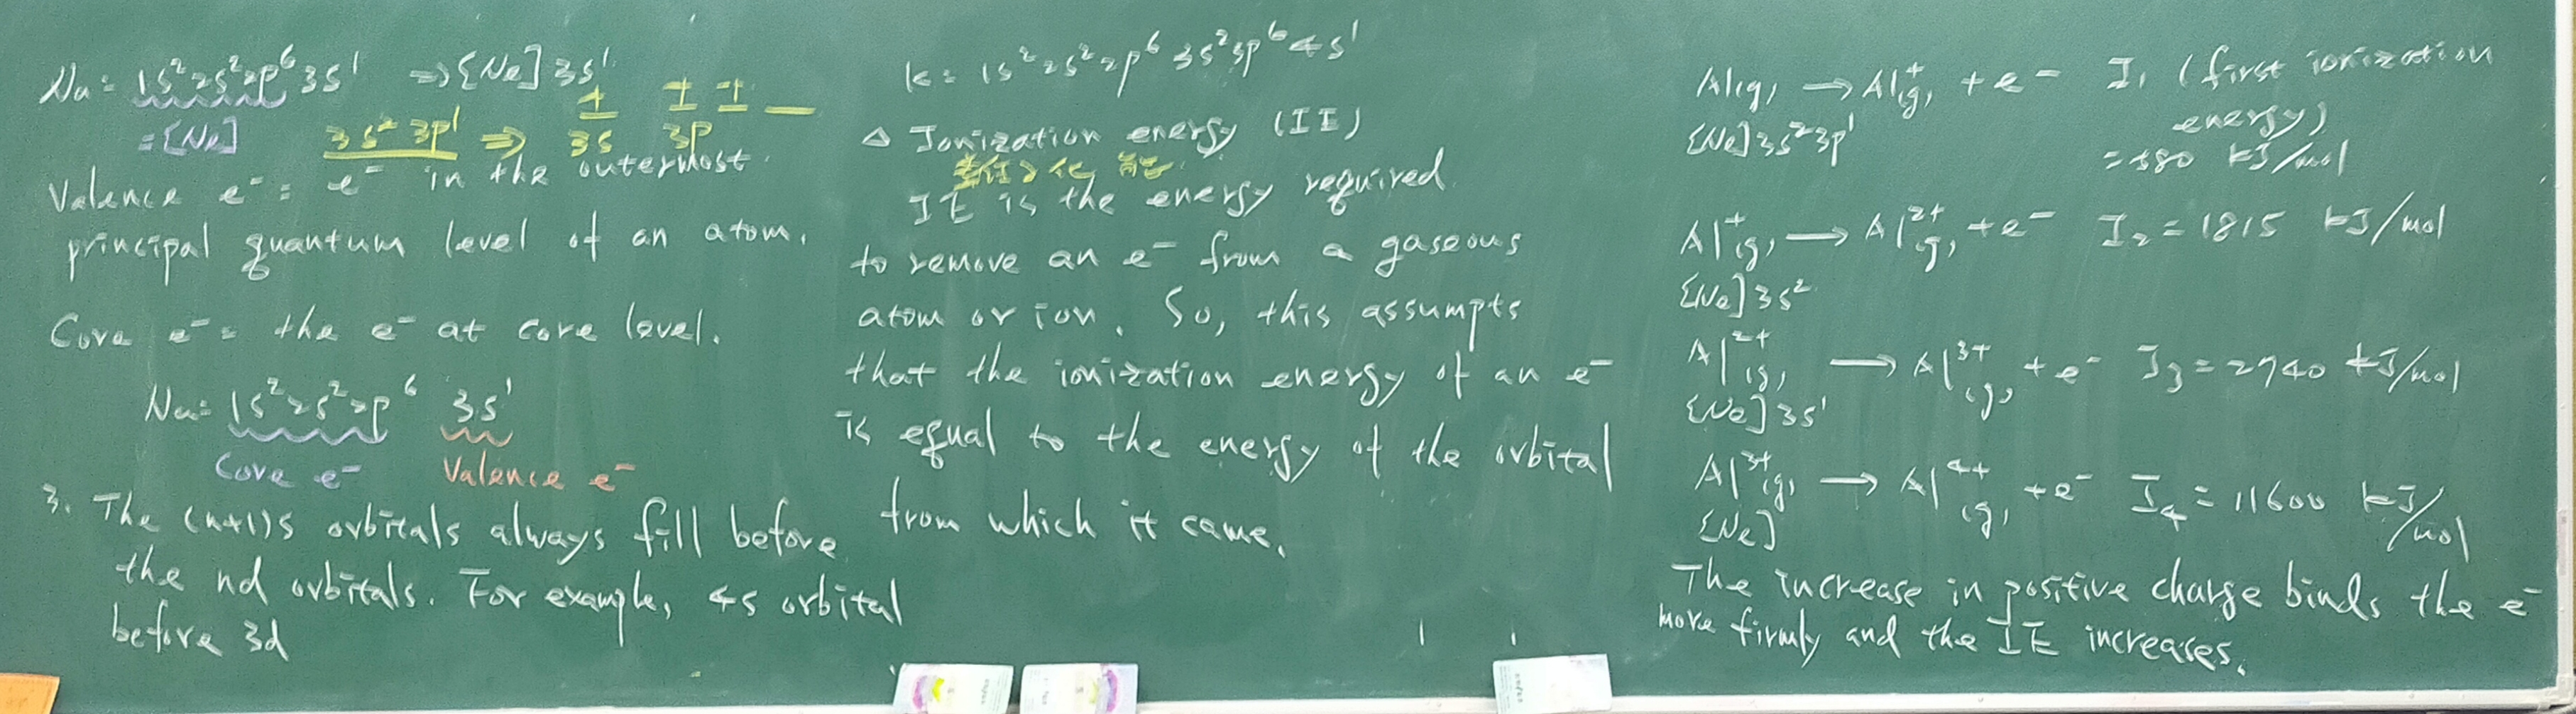 Na = 1s²2s²2p⁶3s¹ ⇒ [Ne]3s¹
= [Ne]
3s² 3p¹ ⇒ 3s 3p
Valence e⁻ = e⁻ in the outermost
principal quantum level of an atom.
Core e⁻ = the e⁻ at core level.
Na = 1s²2s²2p⁶ 3s¹
Core e⁻ Valence e⁻
3. The (n+1)s orbitals always fill before
the nd orbitals. For example, 4s orbital
before 3d
K = 1s²2s²2p⁶3s²3p⁶4s¹
△ Ionization energy (IE)
化 能
IE is the energy required
to remove an e⁻ from a gaseous
atom or ion. So, this assumpts
that the ionization energy of an e⁻
is equal to the energy of the orbital
from which it came.
Al(g) → Al⁺(g) + e⁻ I₁ (first ionization
energy)
[Ne]3s²3p¹ = 580 kJ/mol
Al⁺(g) → Al²⁺(g) + e⁻ I₂ = 1815 kJ/mol
[Ne]3s²
Al²⁺(g) → Al³⁺(g) + e⁻ I₃ = 2740 kJ/mol
[Ne]3s¹
Al³⁺(g) → Al⁴⁺(g) + e⁻ I₄ = 11600 kJ/mol
[Ne]
The increase in positive charge binds the e⁻
more firmly and the IE increases.